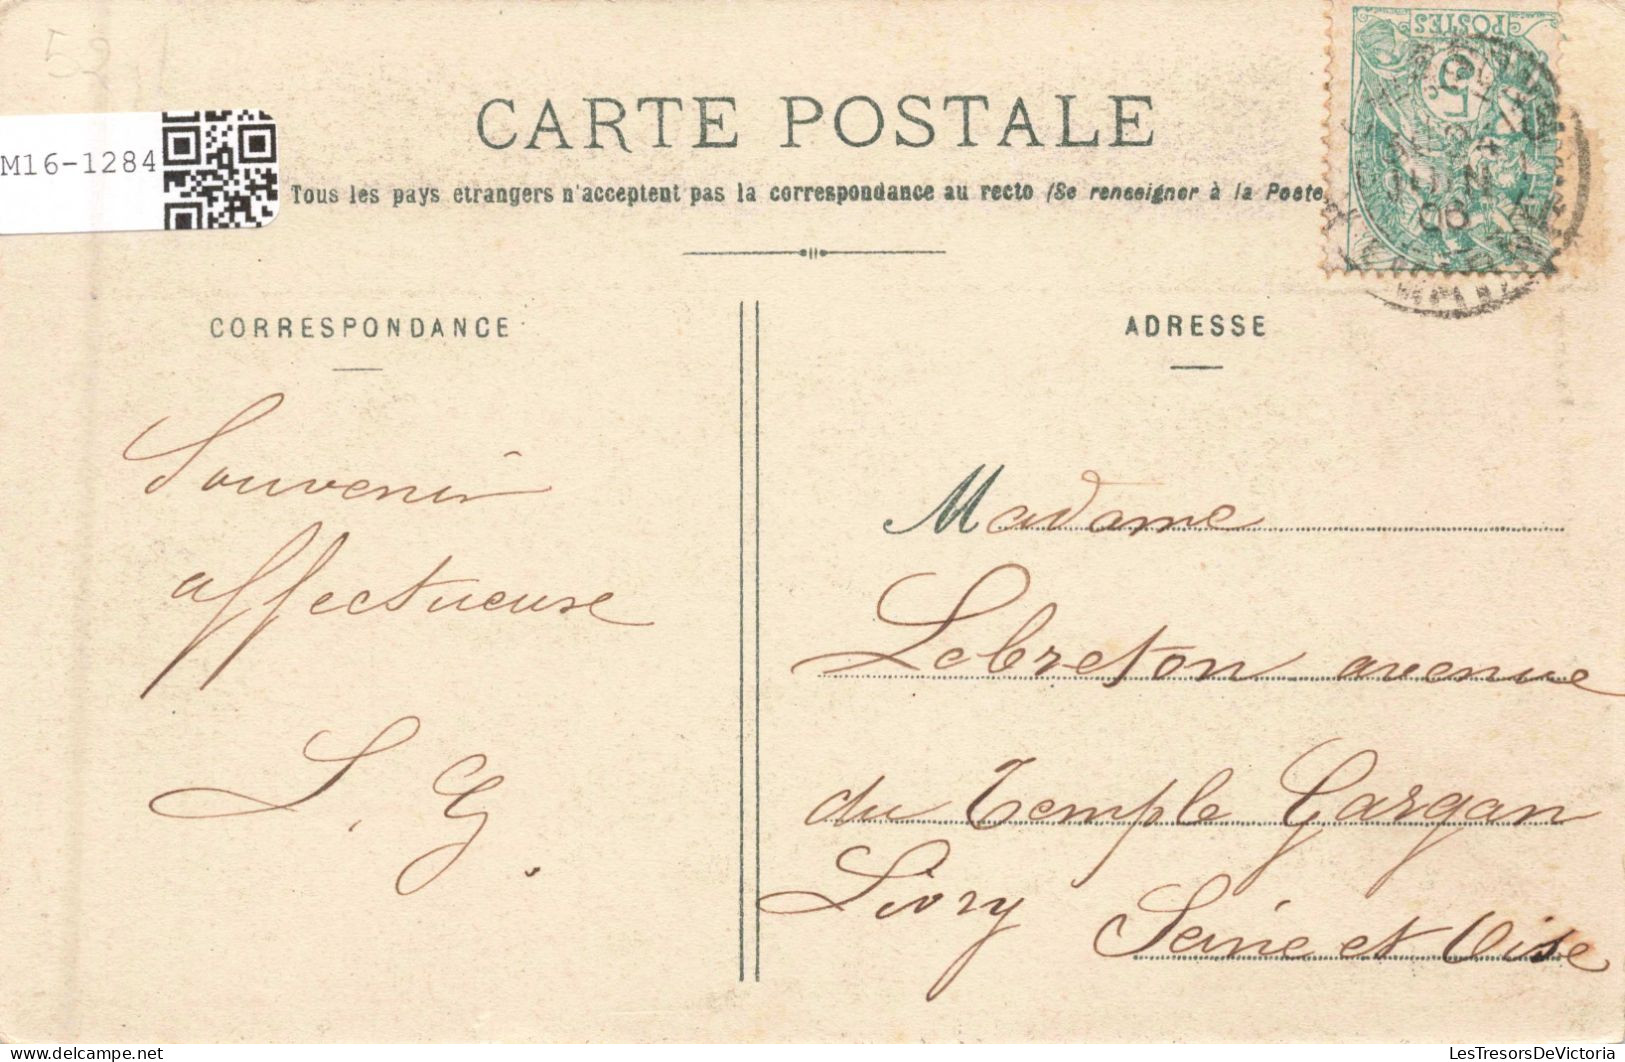 52
M16-1284
CARTE POSTALE
Tous les pays etrangers n'acceptent pas la correspondance au recto (Se renseigner à la Poste
POSTES
5
06
CORRESPONDANCE
ADRESSE
Souvenir
affectueuse
L. G.
Madame
Lebreton avenue
du Temple Gargan
Livry Seine et Oise
www.delcampe.net
LesTresorsDeVictoria